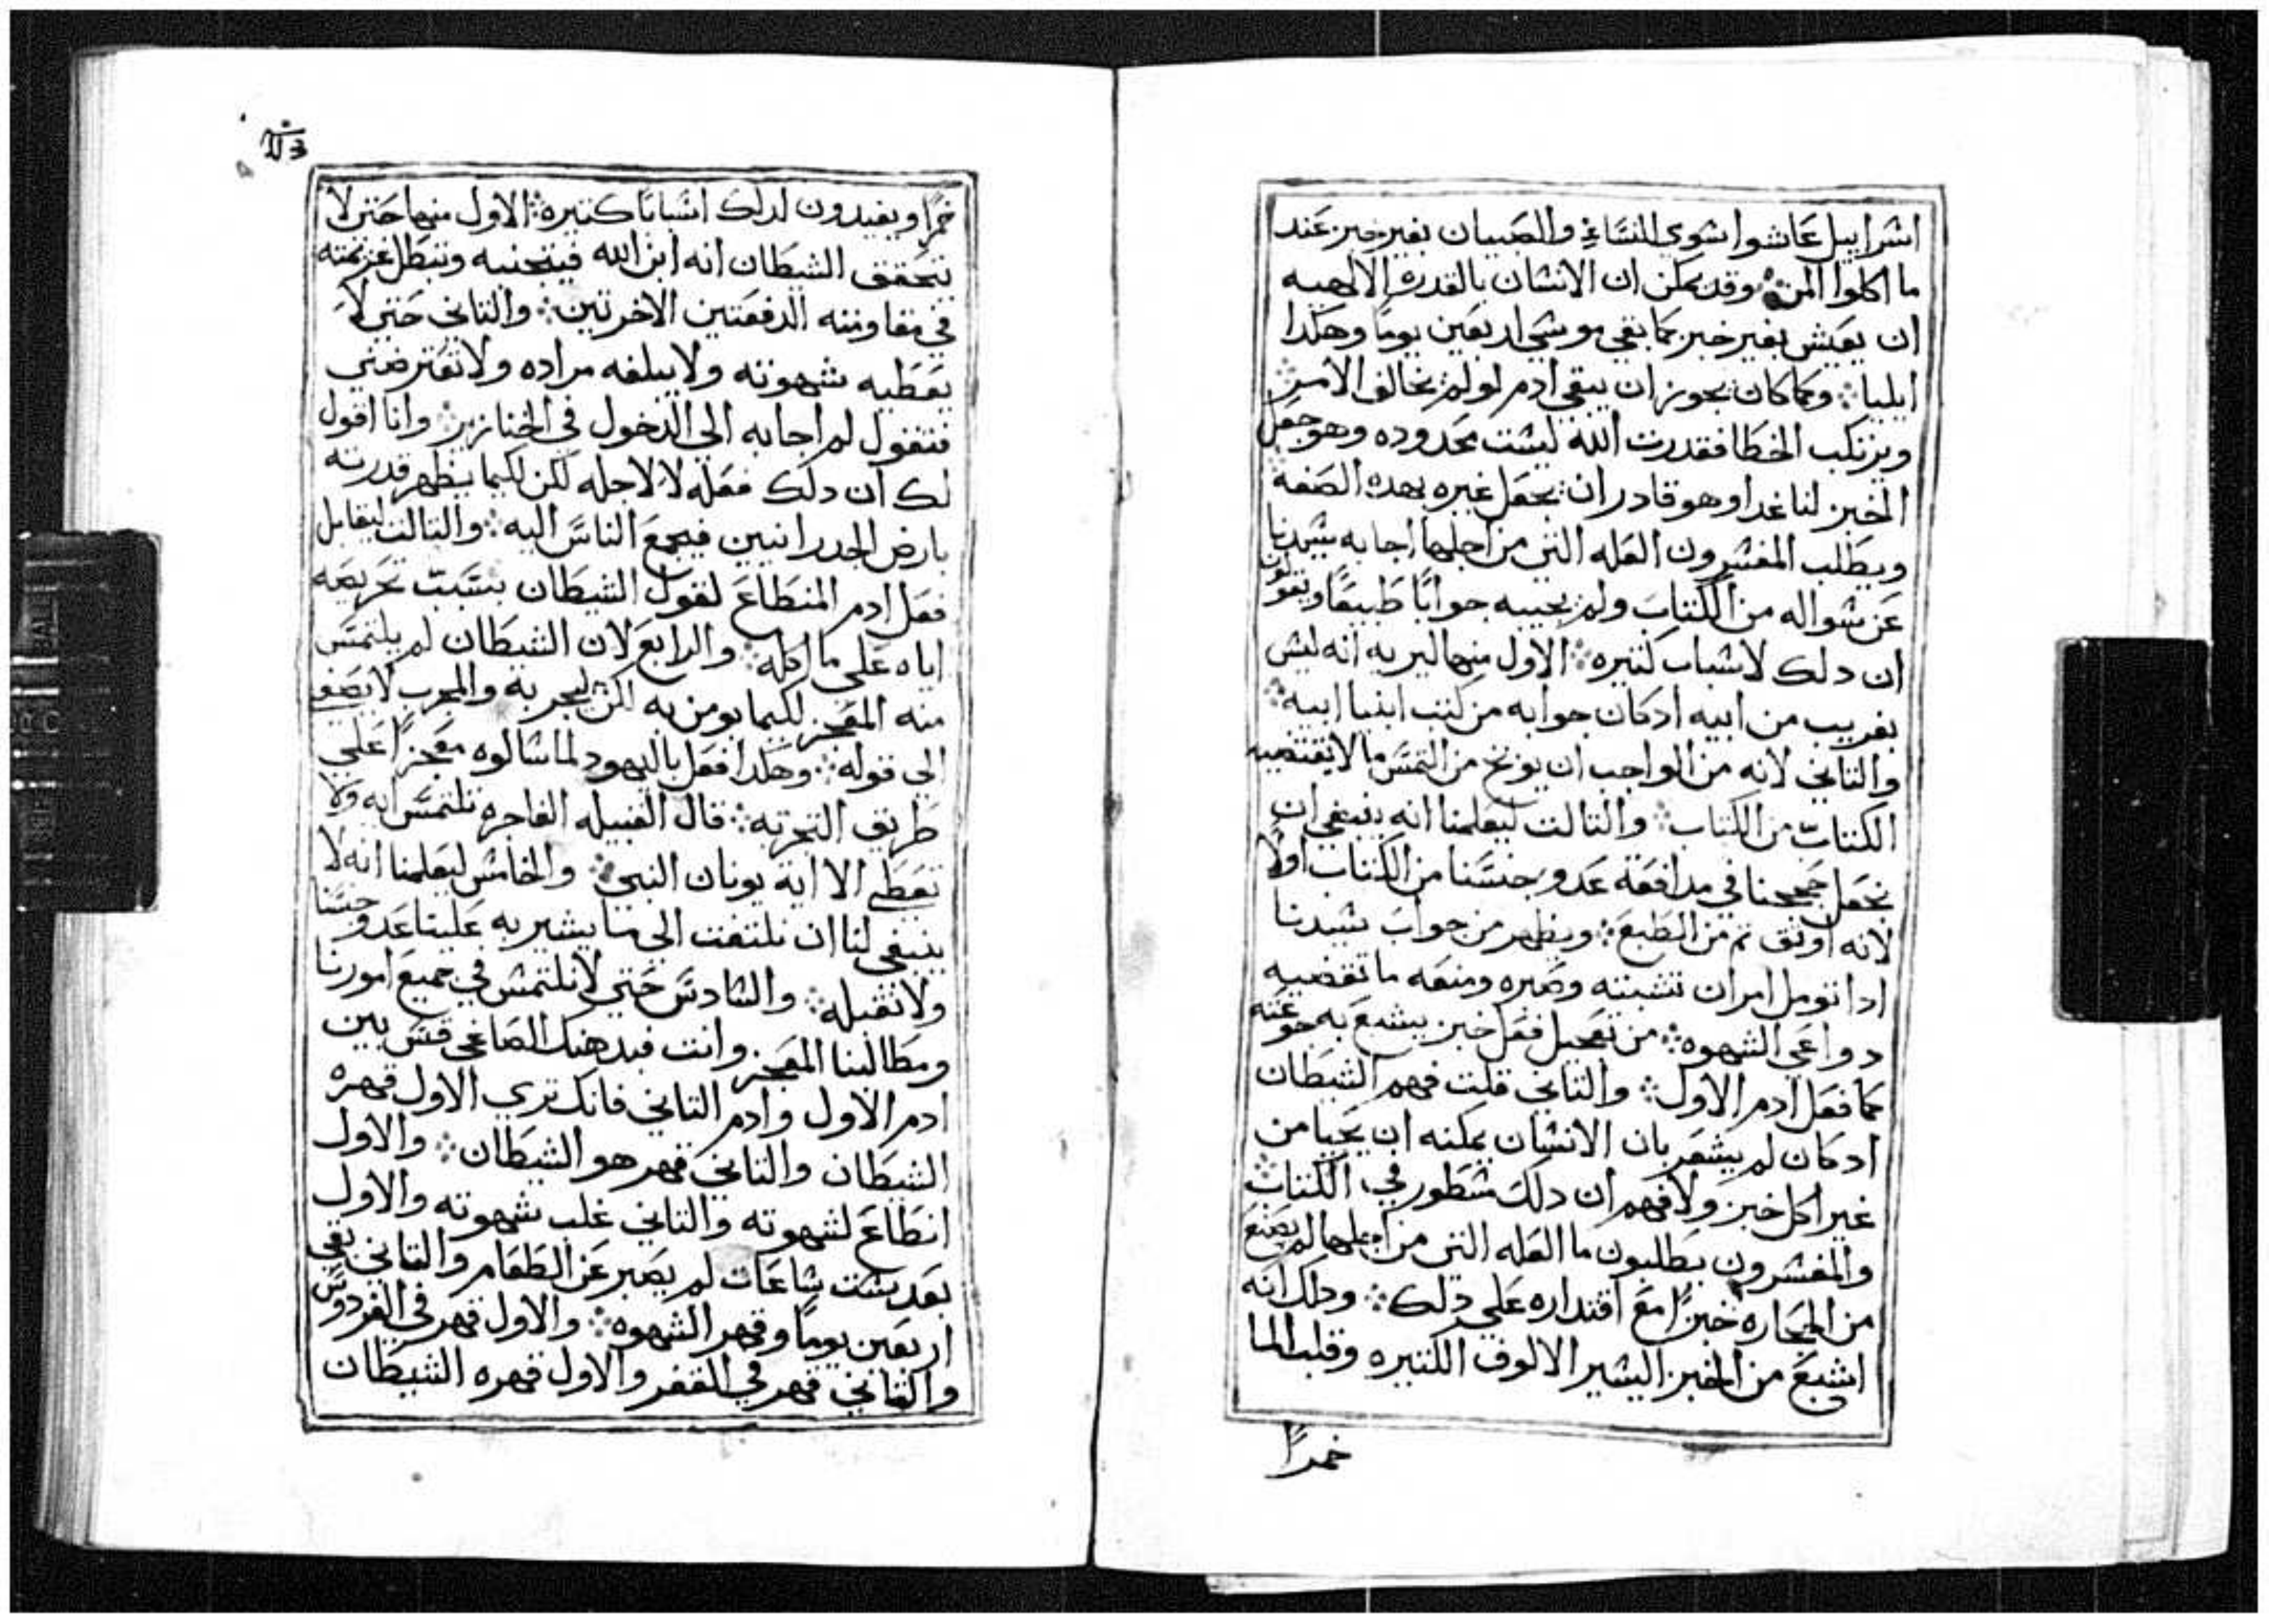 اشراييل عاشوا شوي النسا والصبيان بغير خبز عند
ما اكلوا المن ⁘ وقد يمكن ان الانشان بالقدره الالهيه
ان يعيش بغير خبز كما بقي موشي اربعين يومًا وهكدا
ايليا ⁘ وكما كان يجوز ان يبقي ادم لو لم يخالف الامر ⁘
ويرتكب الخطا فقدرت الله ليشت محدوده وهو جعل
الخبز لنا غدا وهو قادر ان يجعل غيره بهده الصفه
ويطلب المفشرون العله التي من اجلها اجابه شيدنا
عن شواله من الكتاب ولم يجيبه جوابًا طبيعًا ويقولون
ان دلك لاشباب كتيره ⁘ الاول منها ليريه انه ليش
بغريب من ابيه ادكان جوابه من كتب انبيا ابيه ⁘
والتاني لانه من الواجب ان يوبخ من التمس ما لا يقتضيه
الكتاب من الكتاب ⁘ والتالت ليعلمنا انه ينبغي ان
نجعل حججنا في مدافعة عدو جنسنا من الكتاب اولًا
لانه اوتق تم من الطبع ⁘ ويظهر من جواب شيدنا
ادا تومل امران تشبته وصبره ومنعه ما تقضيه
دواعي الشهوه ⁘ من تعجيل فعل خبز يشبع به جوعته
كما فعل ادم الاول ⁘ والتاني قلت فهم الشيطان
ادكان لم يشعر بان الانشان يمكنه ان يحيا من
غير اكل خبز ولا فهم ان دلك مشطور في الكتاب ⁘
والمفشرون يطلبون ما العله التي من اجلها لم يصنع
من الحجاره خبزًا مع اقتداره علي دلك ⁘ ودلك انه
اشبع من الخبز اليشير الالوف الكتيره وقلب الما
خمرًا
خمرًا ويفيدون لدلك اشبابًا كتيره ⁘ الاول منها حتي لا
يتحقق الشيطان انه ابن الله فيتجنبه وتبطل عزيمته
في مقاومته الدفعتين الاخرتين ⁘ والتاني حتي لا
يعطيه شهوته ولا يبلغه مراده ولا تعترضني
فتقول لم اجابه الي الدخول في الخنازير ⁘ وانا اقول
لك ان دلك فعله لا لاجله لكن لكيما يظهر قدرته
بارض الجدرانيين فيجمع الناس اليه ⁘ والتالت ليقابل
فعل ادم المنطاع لقول الشيطان بسبب تحريصه
اياه علي ما اكله ⁘ والرابع لان الشيطان لم يلتمس
منه المعجز لكيما يومن به لكن ليجربه والمجرب لا يصغي
الي قوله ⁘ وهكدا فعل باليهود لما شالوه معجزًا علي
طريق التجربه ⁘ قال القبيله الفاجره تلتمس ايه ولا
تعطي الا اية يونان النبي ⁘ والخامش ليعلمنا انه لا
ينبغي لنا ان نلتفت الي ما يشير به علينا عدو جنسنا
ولا نقبله ⁘ والشادس حتي لا نلتمش في جميع امورنا
ومطالبنا المعجز وانت فبدهنك الصاغي قس بين
ادم الاول وادم التاني فانك تري الاول قهره
الشيطان والتاني قهر هو الشيطان ⁘ والاول
انطاع لشهوته والتاني غلب شهوته والاول
بعد شت شاعات لم يصبر عن الطعام والتاني بقي
اربعين يومًا وقهر الشهوه ⁘ والاول قهر في الفردوس
والتاني قهر في القفر والاول قهره الشيطان